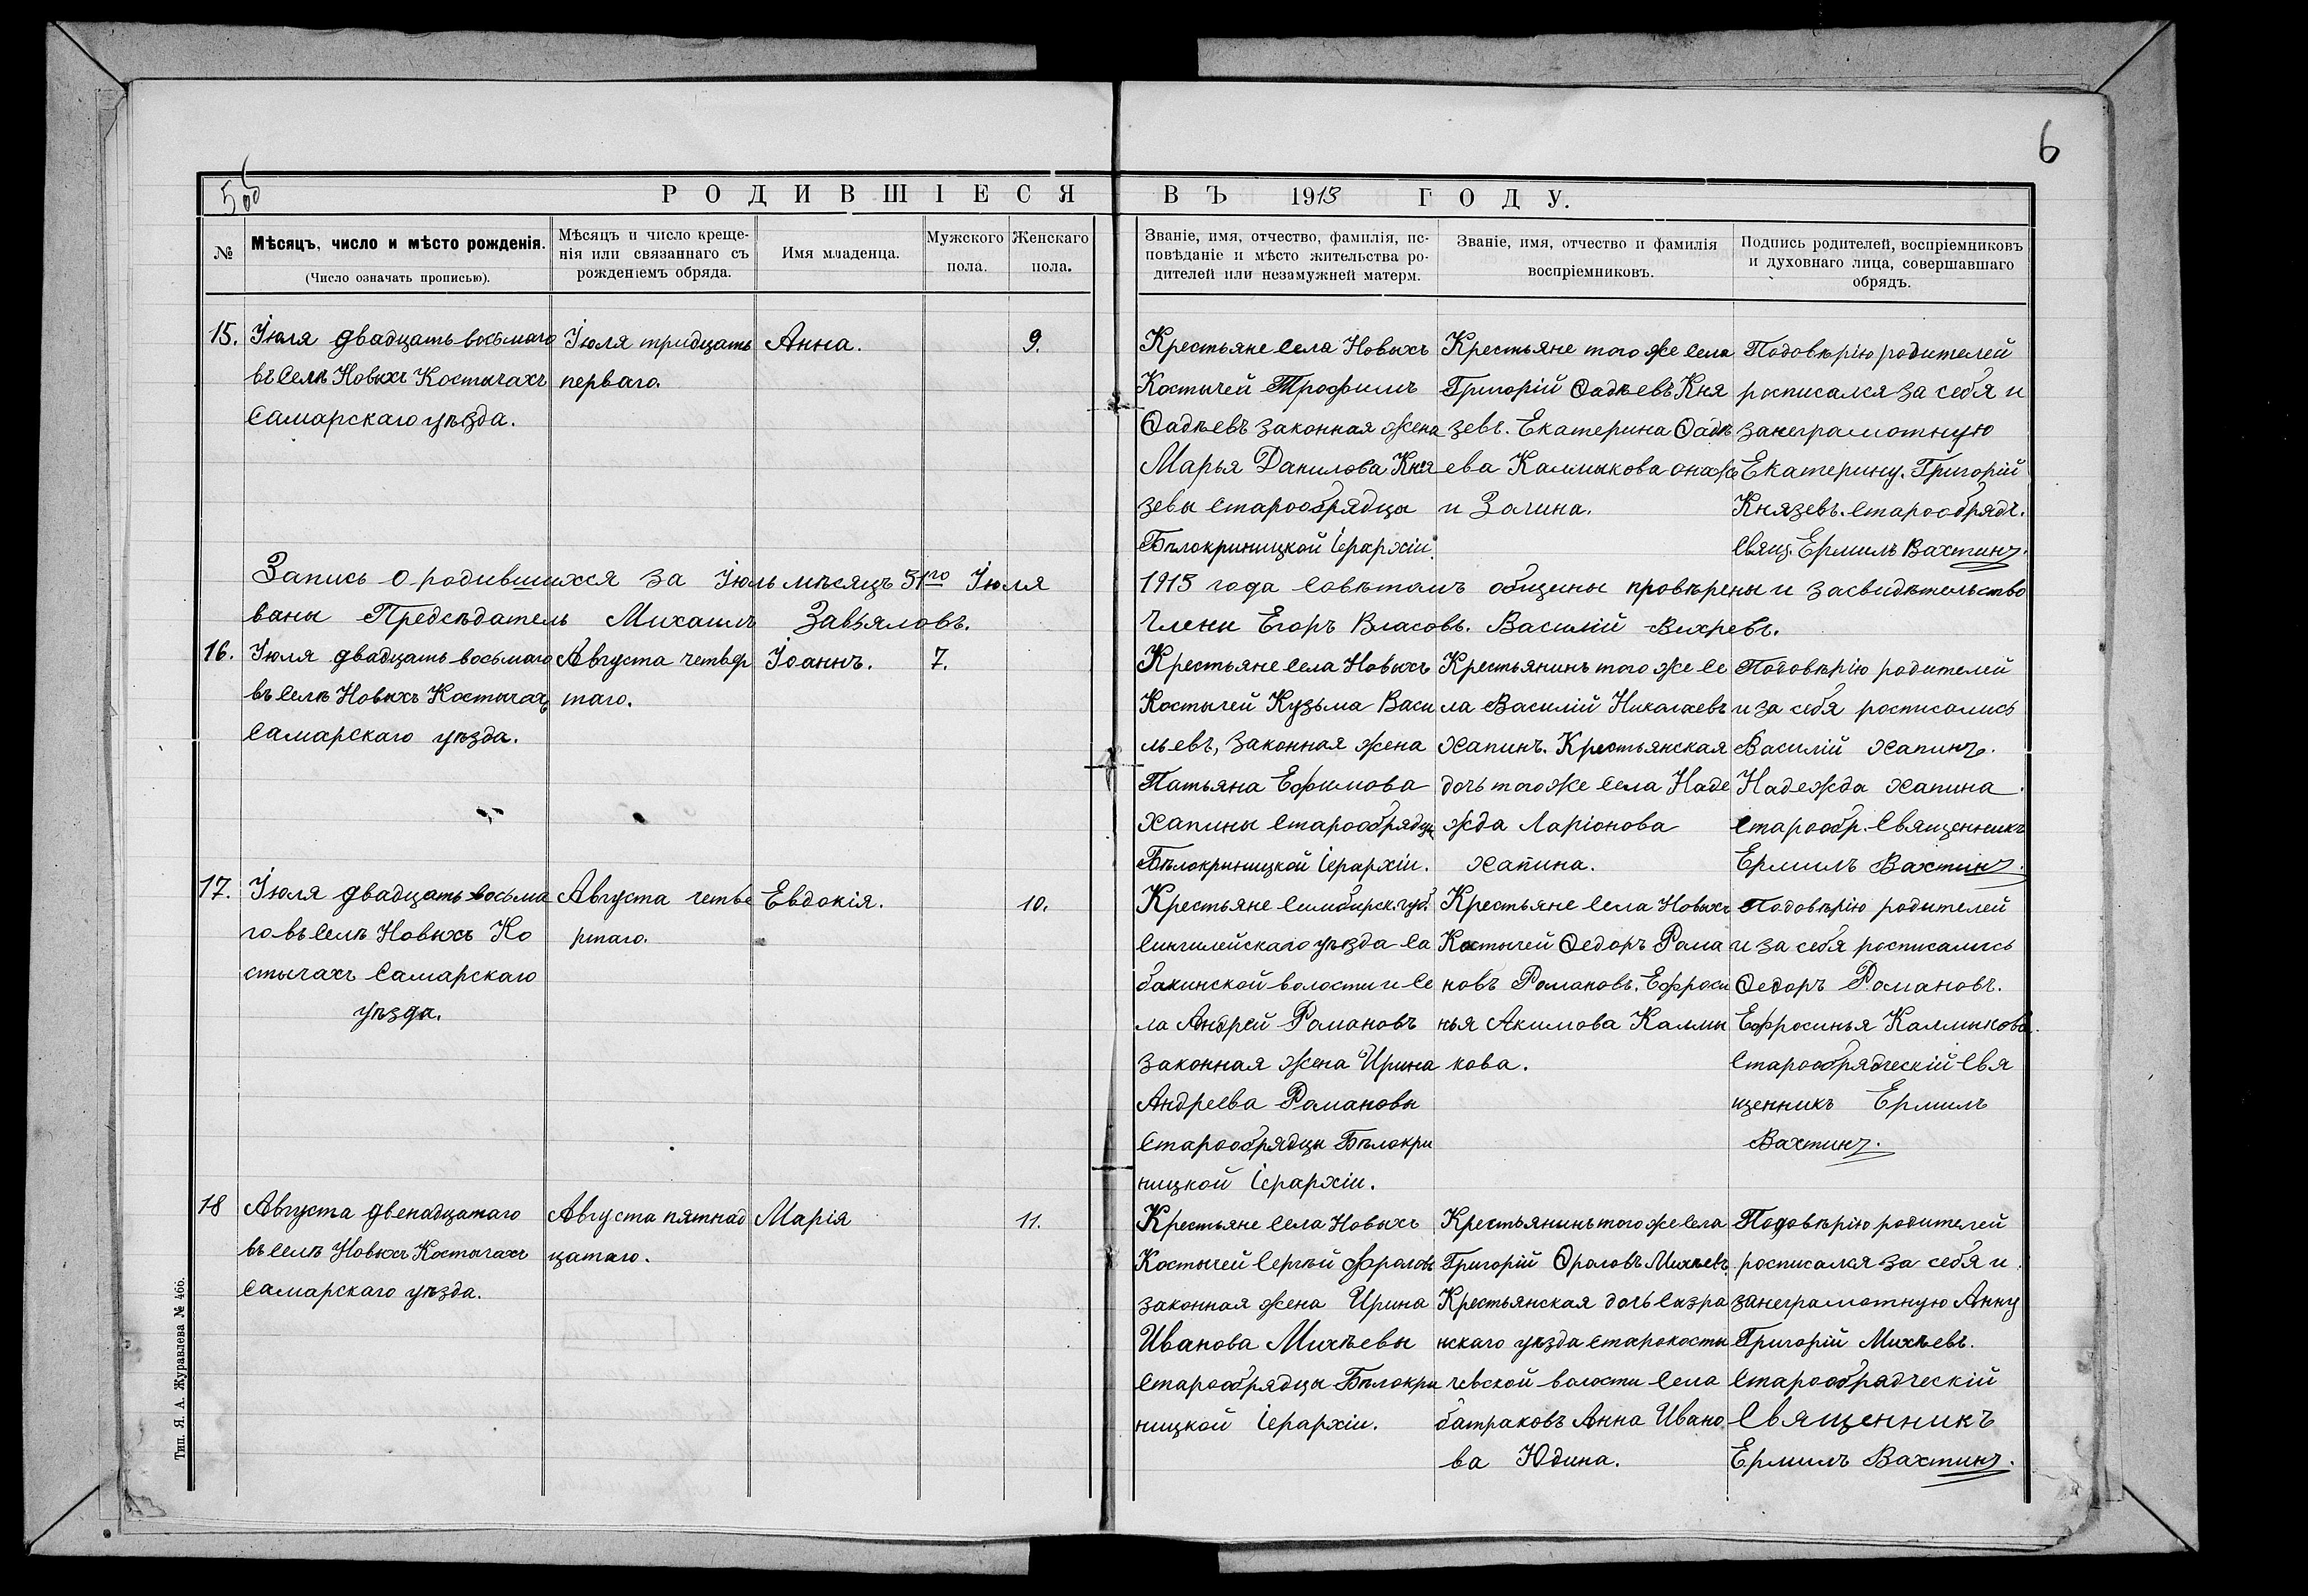 6
РОДИВШІЕСЯ ВЪ 1913 ГОДУ.
№
Мѣсяцъ, число и мѣсто рожденія.
(Число означать прописью).
Мѣсяцъ и число креще-
нія или связаннаго съ
рожденіемъ обряда.
Имя младенца.
Мужского
пола.
Женскаго
пола.
Званіе, имя, отчество, фамилія, ис-
повѣданіе и мѣсто жительства ро-
дителей или незамужней матерм.
Званіе, имя, отчество и фамилія
воспріемниковъ.
Подпись родителей, воспріемниковъ
и духовнаго лица, совершавшаго
обрядъ.
15.
Іюля двадцать восьмаго
въ Селѣ Новыхъ Костычахъ
Самарскаго уѣзда.
Іюля тридцать
перваго.
Анна.
9.
Крестьяне Села Новыхъ
Костычей Трофимъ
Ѳадѣевъ законная жена
Марья Данилова Кня
зевы Старообрядцы
Бѣлокриницкой Іерархіи.
Крестьяне того же Села
Григорій Ѳадѣевъ Кня
зевъ. Екатерина Ѳадѣ
ева Калмыкова онаже
и Зачина.
Подовѣрію родителей
росписался за себя и
занеграмотную
Екатерину. Григорій
Князевъ. Старообрядч.
Свящ. Ермилъ Вахтинъ.
Запись о родившихся за Іюль мѣсяцъ 31го Іюля 1913 года Совѣтомъ общины провѣрены и засвидѣтельство
ваны Предсѣдатель Михаилъ Завьяловъ. Члены Егоръ Власовъ. Василій Вихревъ.
16.
Іюля двадцать восьмаго
въ Селѣ Новыхъ Костычахъ
Самарскаго уѣзда.
Августа четвер
таго.
Іоаннъ.
7.
Крестьяне Села Новыхъ
Костычей Кузьма Васи
льевъ, законная жена
Татьяна Ефимова
Хапины Старообрядцы
Бѣлокриницкой Іерархіи.
Крестьянинъ того же Се
ла Василій Николаевъ
Хапинъ. Крестьянская
дочь тогоже Села Наде
жда Ларіонова
Хапина.
Подовѣрію родителей
и за себя росписались
Василій Хапинъ.
Надежда Хапина
Старообр. Священникъ
Ермилъ Вахтинъ.
17.
Іюля двадцать восьма
го въ Селѣ Новыхъ Ко
стычахъ Самарскаго
уѣзда.
Августа четве
ртаго.
Евдокія.
10.
Крестьяне Симбирск. губ.
Сингилейскаго уѣзда Са
бакинской волости и Се
ла Андрей Романовъ
законная жена Ирина
Андреева Романовы
Старообрядцы Бѣлокри
ницкой Іерархіи.
Крестьяне Села Новыхъ
Костычей Ѳедоръ Рома
новъ Романовъ. Ефроси
нья Акимова Калмы
кова.
Подовѣрію родителей
и за себя росписались
Ѳедоръ Романовъ.
Ефросинья Калмыкова.
Старообрядческій Свя
щенникъ Ермилъ
Вахтинъ.
18
Августа двенадцатаго
въ Селѣ Новыхъ Костычахъ
Самарскаго уѣзда.
Августа пятнад
цатаго.
Марія
11.
Крестьяне Села Новыхъ
Костычей Сергѣй Фроловъ
законная жена Ирина
Иванова Михѣевы
Старообрядцы Бѣлокри
ницкой Іерархіи.
Крестьянинъ того же Села
Григорій Ѳроловъ Михѣевъ.
Крестьянская дочь Сызра
нскаго уѣзда Старокосты
чевской волости Села
батраковъ Анна Ивано
ва Юдина.
Подовѣрію родителей
росписался за себя и
занеграмотную Анну
Григорій Михѣевъ.
Старообрядческій
Священникъ
Ермилъ Вахтинъ.
Тип. Я. А. Журавлева № 466.